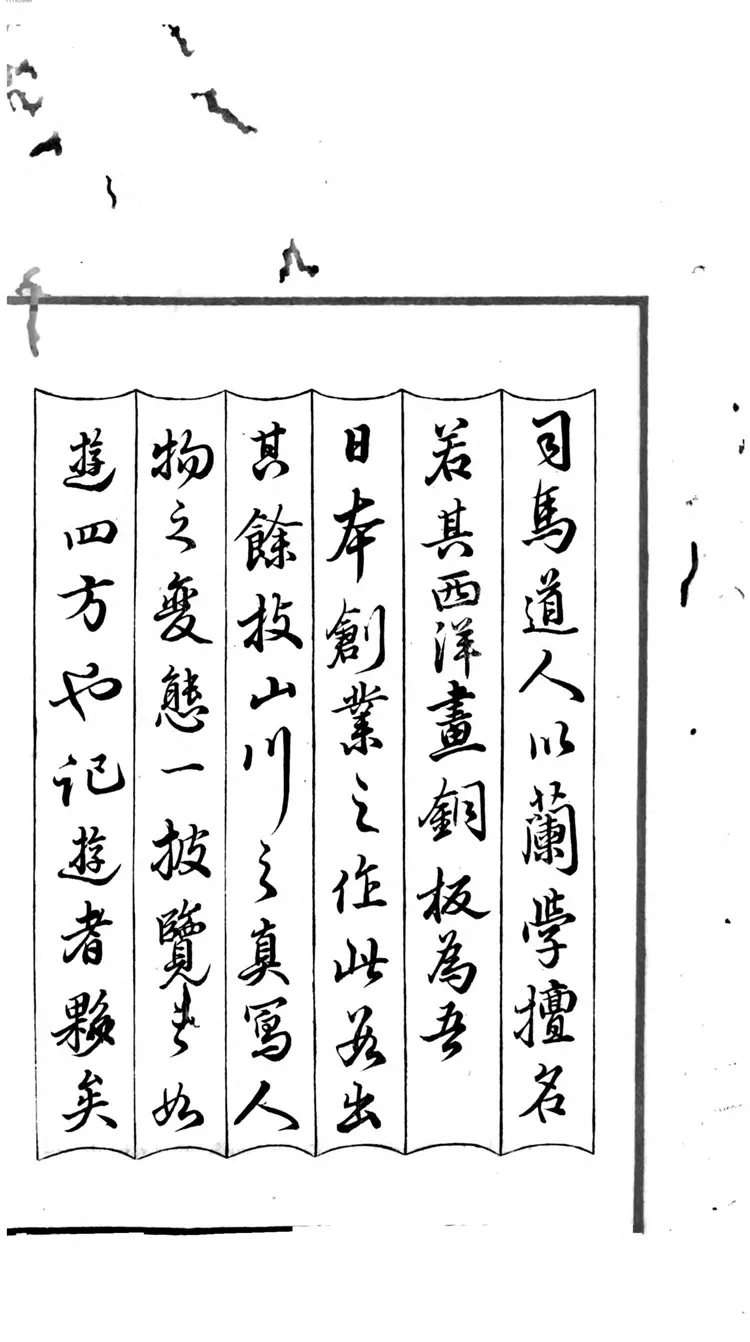 司馬道人以蘭學擅名
若其西洋畫銅板為吾
日本創業之作此出
其餘技山川之真寫人
物之變態一披覽如
遊四方也記遊者夥矣